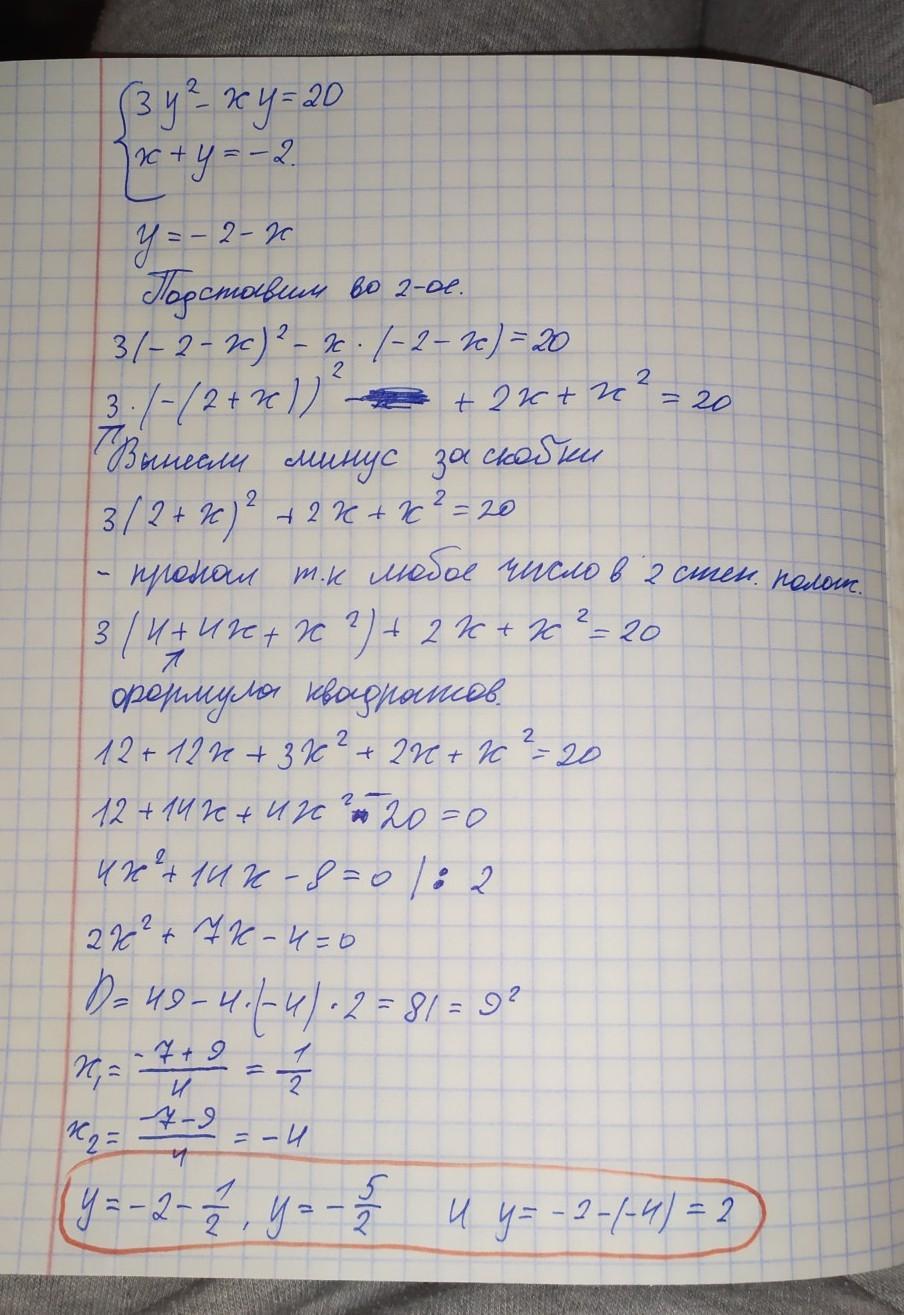 3y² - xy = 20
x + y = -2.
y = -2 - x
Подставим во 2-ое.
3(-2 - x)² - x · (-2 - x) = 20
3 · (-(2 + x))² + 2x + x² = 20
Вынесли минус за скобки
3(2 + x)² + 2x + x² = 20
- пропал т.к любое число в 2 степ. полож.
3(4 + 4x + x²) + 2x + x² = 20
формула квадратов.
12 + 12x + 3x² + 2x + x² = 20
12 + 14x + 4x² - 20 = 0
4x² + 14x - 8 = 0 | : 2
2x² + 7x - 4 = 0
D = 49 - 4 · (-4) · 2 = 81 = 9²
x₁ = (-7 + 9)/4 = 1/2
x₂ = (-7 - 9)/4 = -4
y = -2 - 1/2, y = -5/2 и y = -2 - (-4) = 2